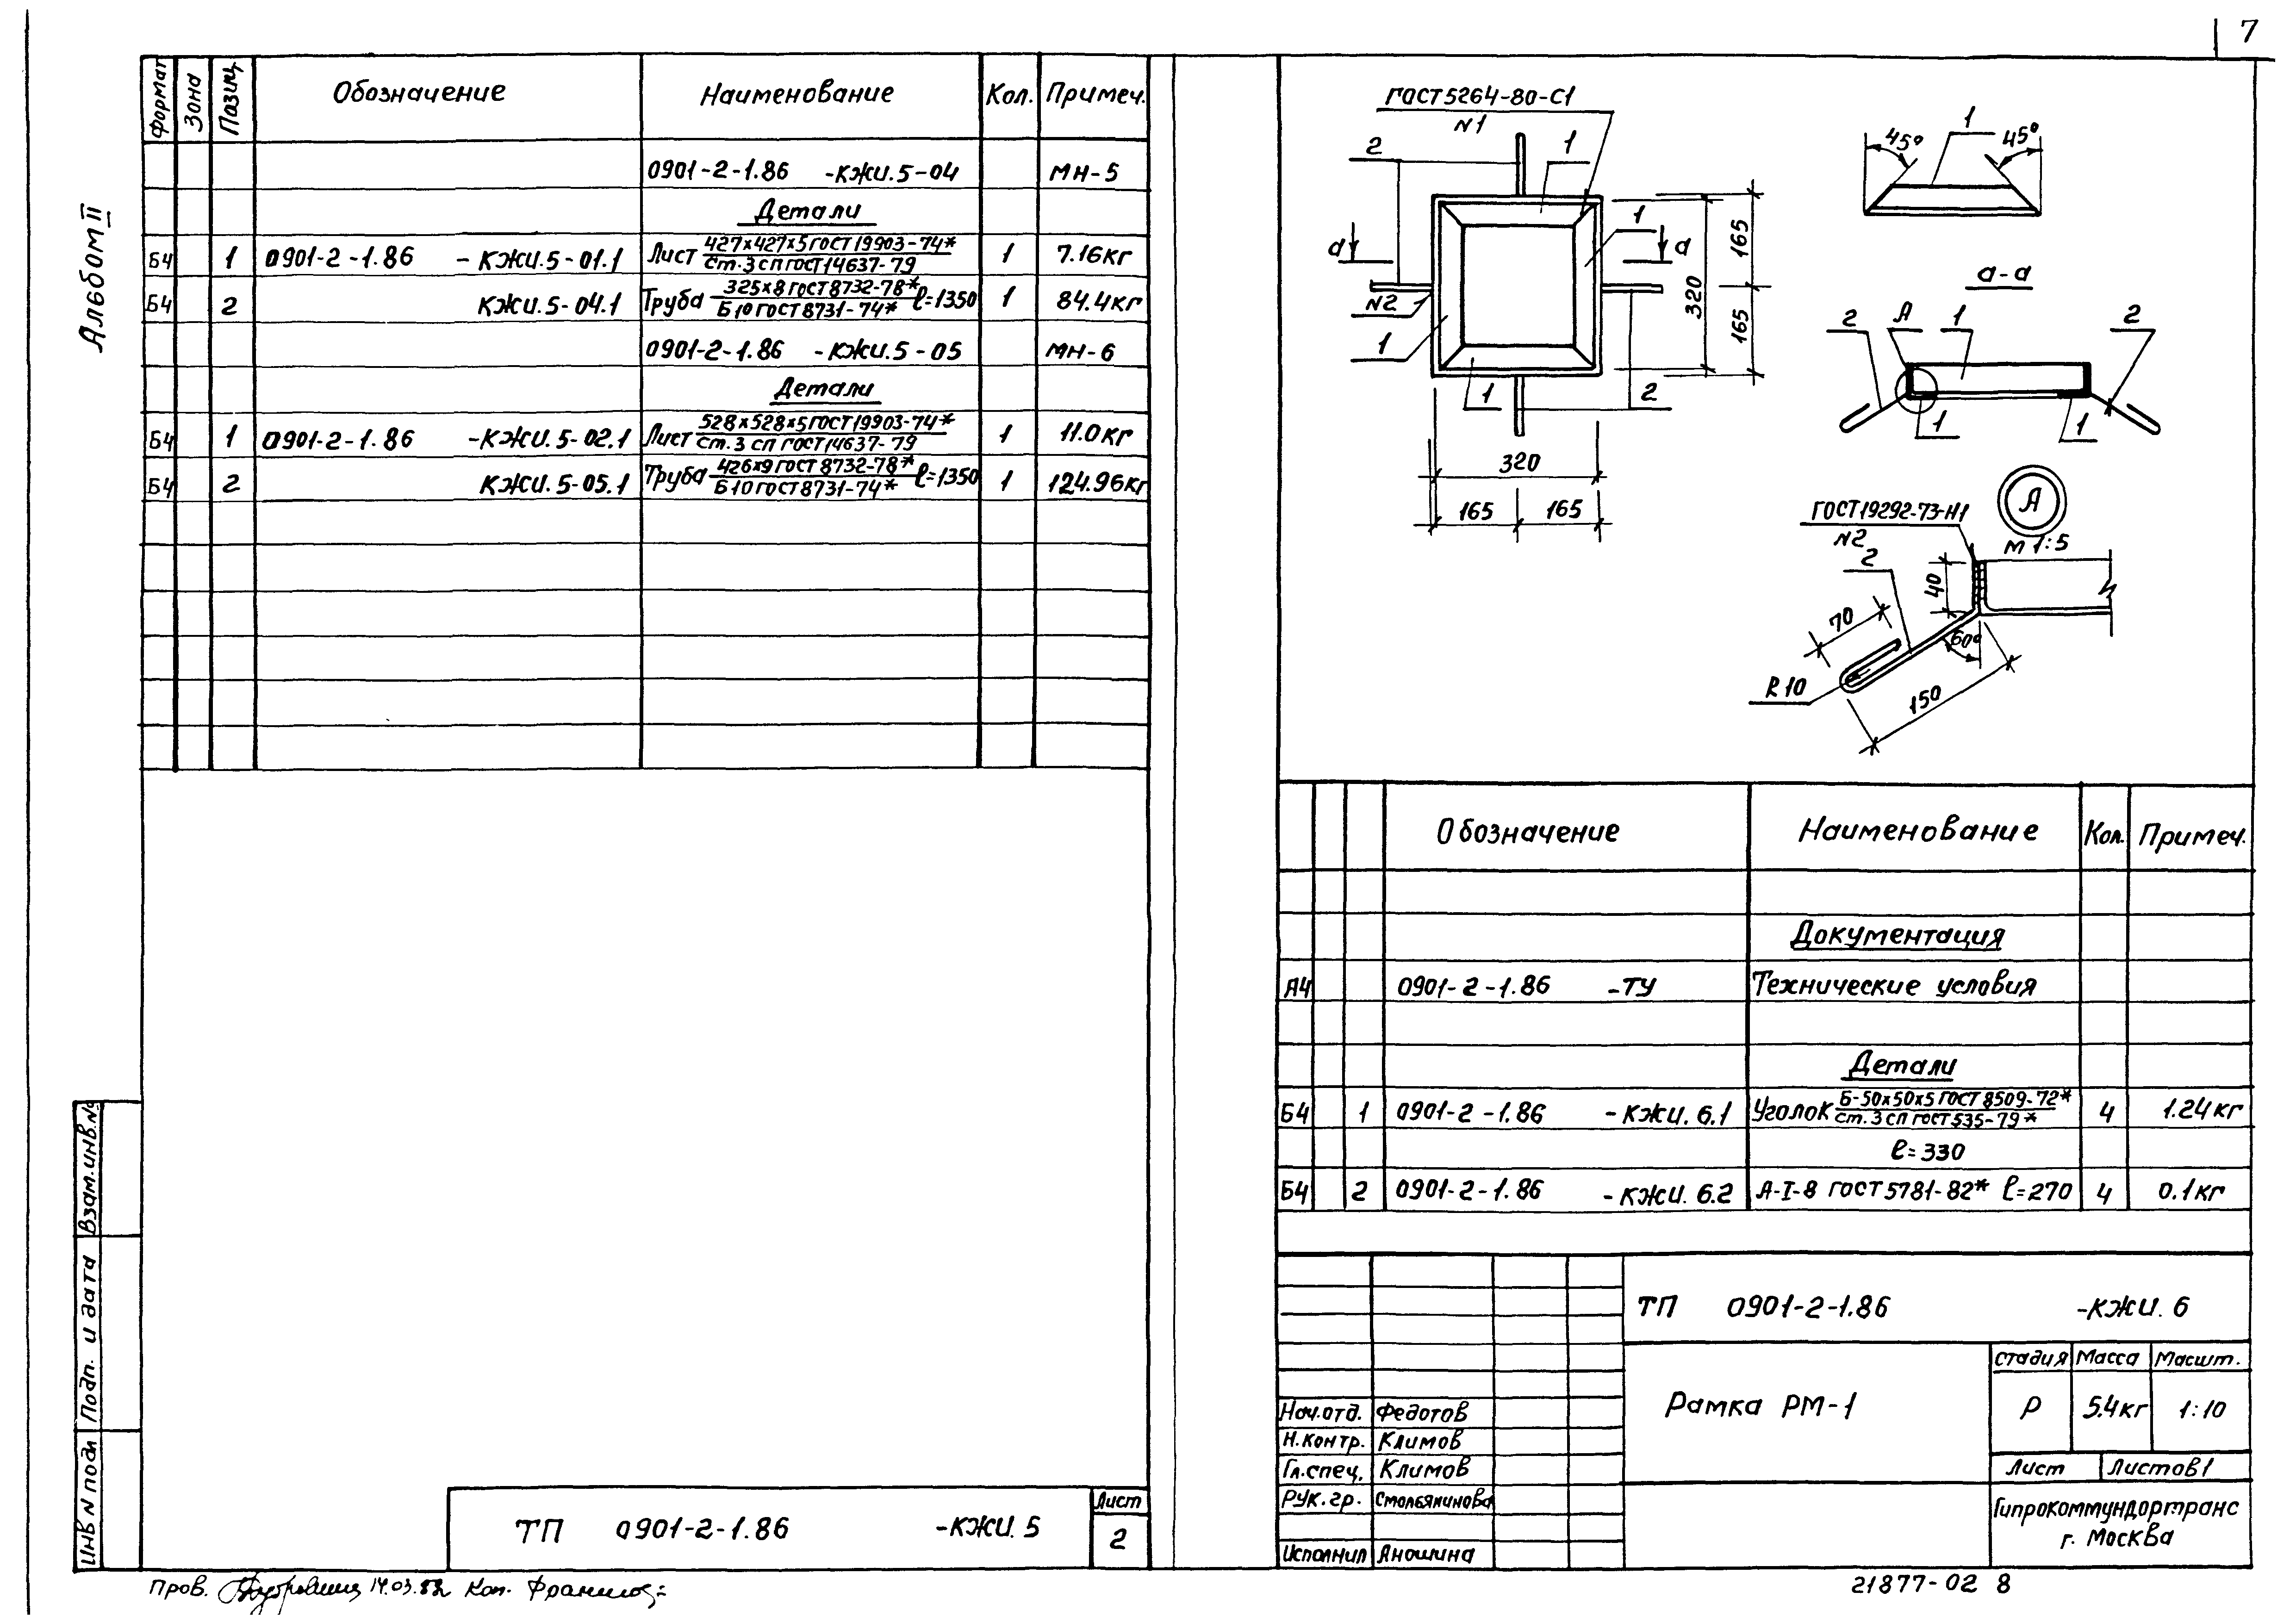 7
Альбом II
Формат Зона Позиц. Обозначение Наименование Кол. Примеч.
0901-2-1.86 -КЖИ.5-04 МН-5
Детали
Б4 1 0901-2-1.86 -КЖИ.5-01.1 Лист 427х427х5 ГОСТ 19903-74* / Ст.3 сп ГОСТ 14637-79 1 7.16кг
Б4 2 КЖИ.5-04.1 Труба 325х8 ГОСТ 8732-78* / Б10 ГОСТ 8731-74* ℓ=1350 1 84.4кг
0901-2-1.86 -КЖИ.5-05 МН-6
Детали
Б4 1 0901-2-1.86 -КЖИ.5-02.1 Лист 528х528х5 ГОСТ 19903-74* / Ст.3 сп ГОСТ 14637-79 1 11.0кг
Б4 2 КЖИ.5-05.1 Труба 426х9 ГОСТ 8732-78* / Б10 ГОСТ 8731-74* ℓ=1350 1 124.96кг
Инв N подл Подп. и дата Взам.инв.№
ТП 0901-2-1.86 -КЖИ.5
Лист
2
Пров. 14.03. Коп.
ГОСТ 5264-80-С1
N1
2
1
1
а
а
N2
1
1
2
165
320
165
320
165
165
45°
1
45°
а-а
2
А
1
2
1
1
А
М 1:5
ГОСТ 19292-73-Н1
N2
2
40
70
60°
R 10
150
Обозначение Наименование Кол. Примеч.
Документация
А4 0901-2-1.86 -ТУ Технические условия
Детали
Б4 1 0901-2-1.86 -КЖИ.6.1 Уголок Б-50х50х5 ГОСТ 8509-72* / Ст.3 сп ГОСТ 535-79* 4 1.24кг
ℓ=330
Б4 2 0901-2-1.86 -КЖИ.6.2 А-I-8 ГОСТ 5781-82* ℓ=270 4 0.1кг
ТП 0901-2-1.86 -КЖИ.6
Рамка РМ-1
Стадия Масса Масшт.
Р 5.4кг 1:10
Лист Листов 1
Гипрокоммундортранс
г. Москва
Нач.отд. Федотов
Н.контр. Климов
Гл.спец. Климов
Рук.гр. Смольянинова
Исполнил Яношина
21877-02 8